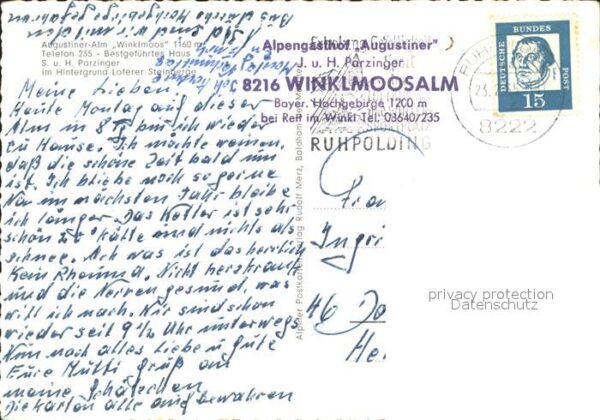 Augustiner-Alm "Winklmoos" 1160 m
Telefon 235 - Bestgeführtes Haus
S. u. H. Parzinger
im Hintergrund Loferer Steinberge
Meine Lieben,
Heute Montag auf dieser
Alm in 8 Tg bin ich wieder
zu Hause. Ich möchte weinen,
daß die schöne Zeit bald um
ist. Ich bliebe noch so gerne
Nur im nächsten Jahr bleibe
ich länger. Das Wetter ist sehr
schön 20° Kälte und nichts als
schnee. Ach was ist das herrlich
Kein Rheuma. Nicht herzkrank
und die Nerven gesund, was
will ich noch. Wir sind schon
wieder seit 9 1/2 Uhr unterwegs
Nun noch alles Liebe u. Gute
Eure Mutti Gruß an
meine Schätzchen
Die Karten alle aufbewahren
Alpengasthof "Augustiner"
J. u. H. Parzinger
8216 WINKLMOOSALM
Bayer. Hochgebirge 1200 m
bei Reit im Winkl Tel. 03640/235
RUHPOLDING
DEUTSCHE
BUNDES
POST
15
8222
Alpiner Postkarten-Verlag Rudolf Merz, Baldham
Frau
Ingri
46 Do
He
privacy protection
Datenschutz